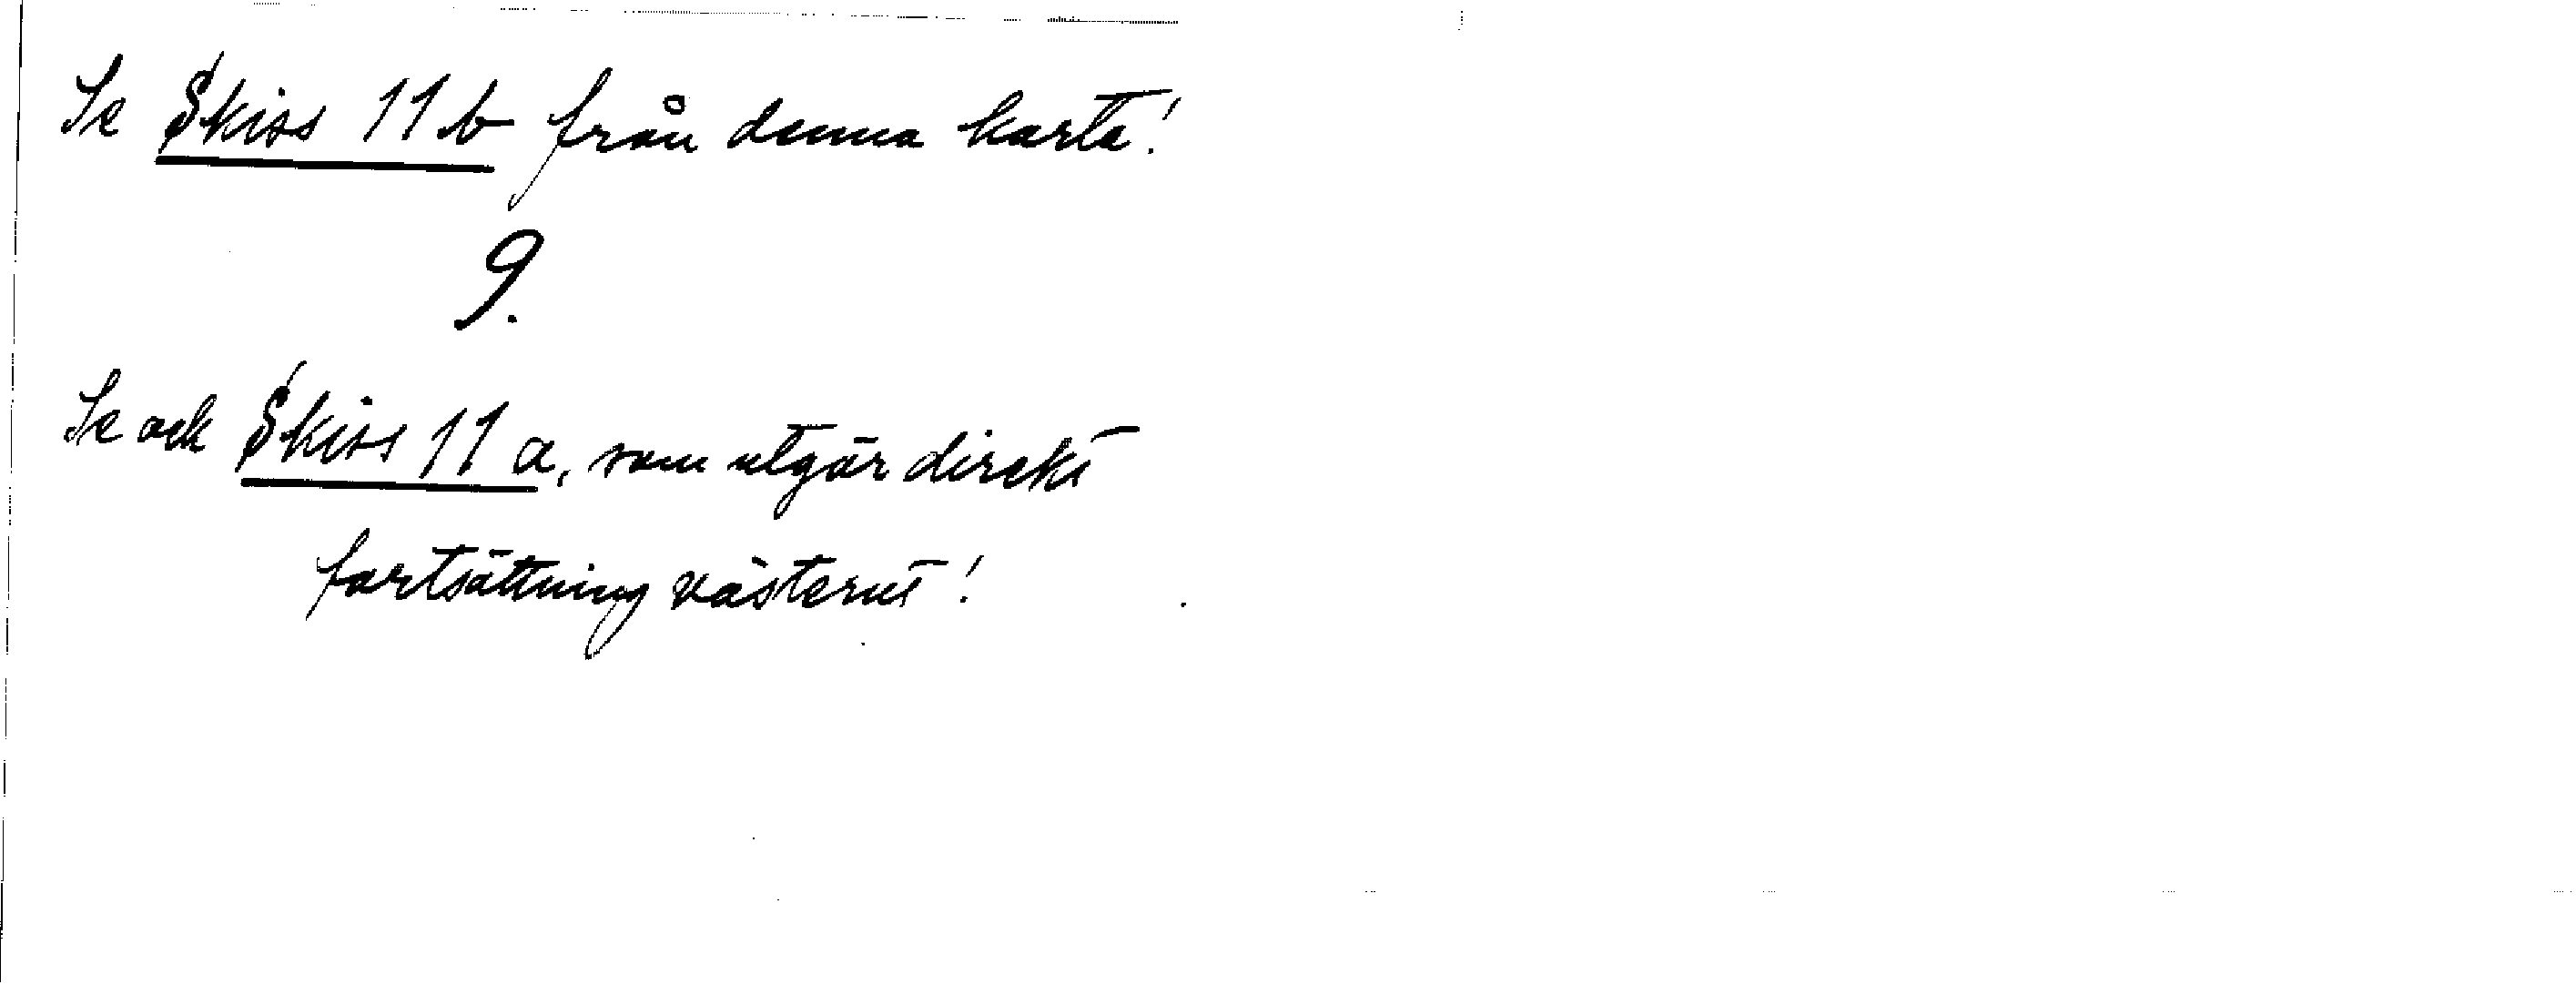 Se Skiss 11 b från denna karta!
9.
Se ock Skiss 11 a, som utgör direkt
fortsättning västerut!